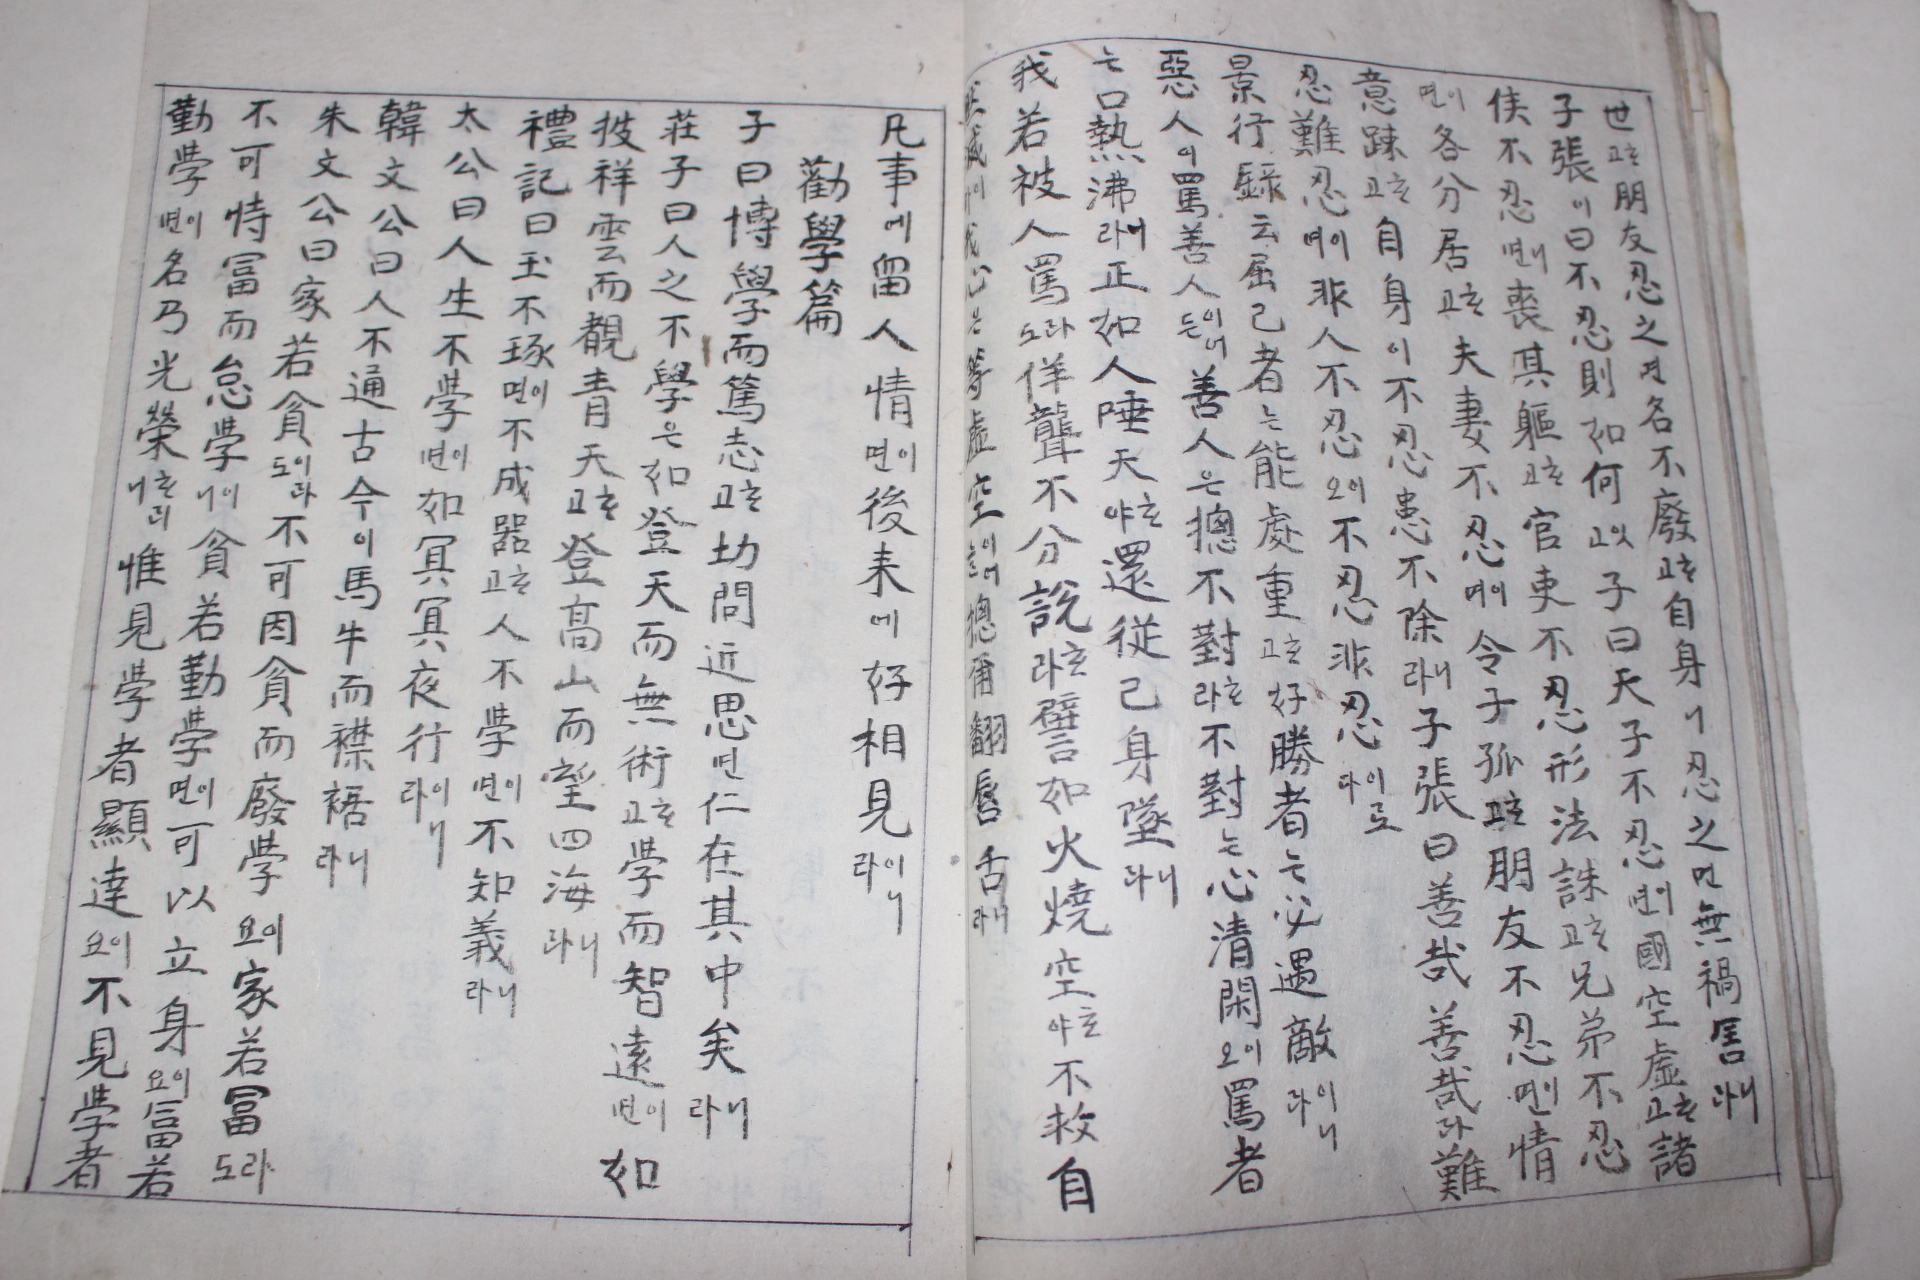 世하고朋友忍之면名不廢하고自身이忍之면無禍害니라
子張이曰不忍則如何以고子曰天子不忍이면國空虛하고諸
侯不忍이면喪其軀하고官吏不忍形法誅하고兄弟不忍
이면各分居하고夫妻不忍이면令子孤하고朋友不忍이면情
意疎하고自身이不忍患不除니라子張曰善哉善哉라難
忍難忍이며非人不忍이오不忍非忍이로다
景行錄云屈己者는能處重하고好勝者는必遇敵이니라
惡人이罵善人이어든善人은摠不對하라不對는心淸閑이오罵者
는口熱沸니라正如人唾天하야還從己身墜니라
我若被人罵라도佯聾不分說하라譬如火燒空하야不救自
然滅이니我心은等虛空摠爾翻脣舌니라
凡事에留人情이면後來에好相見이니라
勸學篇
子曰博學而篤志하고切問近思면仁在其中矣니라
莊子曰人之不學은如登天而無術하고學而智遠이면如
披祥雲而覩青天하고登高山而望四海니라
禮記曰玉不琢이면不成器하고人不學이면不知義니라
太公曰人生不學이면如冥冥夜行이니라
韓文公曰人不通古今이馬牛而襟裾니라
朱文公曰家若貧이라도不可因貧而廢學이요家若冨라도
不可恃冨而怠學이니貧若勤學이면可以立身이요冨若
勤學이면名乃光榮하리니惟見學者顯達이요不見學者